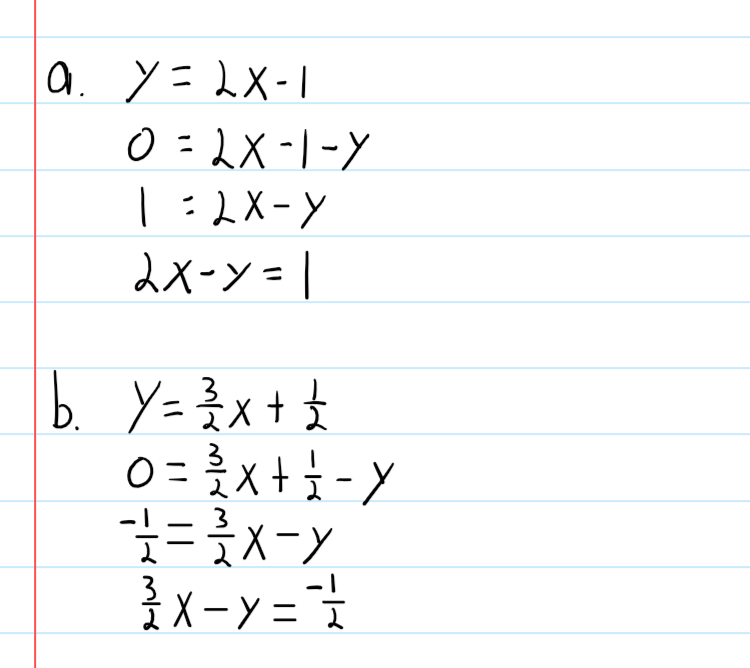 a. y = 2x - 1
0 = 2x - 1 - y
1 = 2x - y
2x - y = 1
b. y = 3/2 x + 1/2
0 = 3/2 x + 1/2 - y
-1/2 = 3/2 x - y
3/2 x - y = -1/2